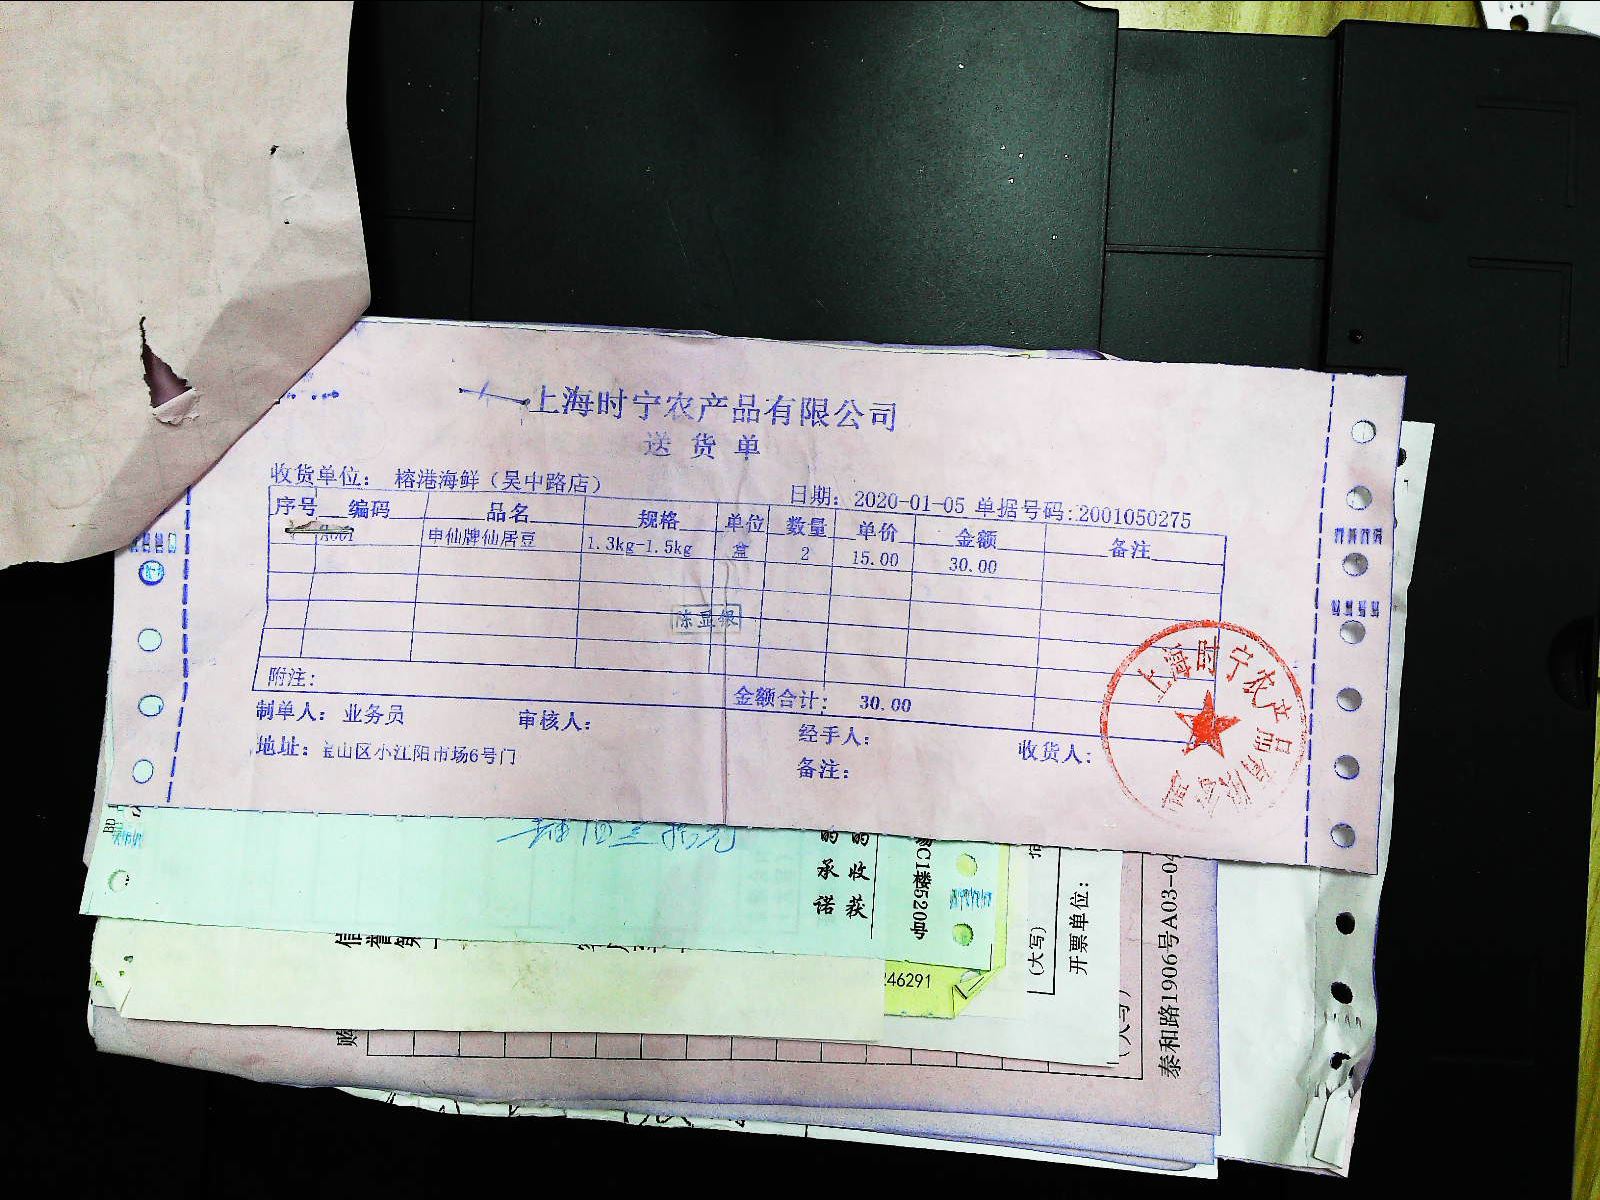 上海时宁农产品有限公司
送货单
收货单位： 榕港海鲜（吴中路店）
日期： 2020-01-05 单据号码:2001050275
序号 编码 品名 规格 单位 数量 单价 金额 备注
申仙牌仙居豆 1.3kg-1.5kg 盒 2 15.00 30.00
陈显银
附注：
金额合计： 30.00
制单人： 业务员 审核人： 经手人： 收货人：
地址：宝山区小江阳市场6号门 备注：
上海时宁农产品有限公司
的收获
的承诺
C1楼520
46291
(大写)
开票单位：
(大写)
泰和路1906号A03-04
购